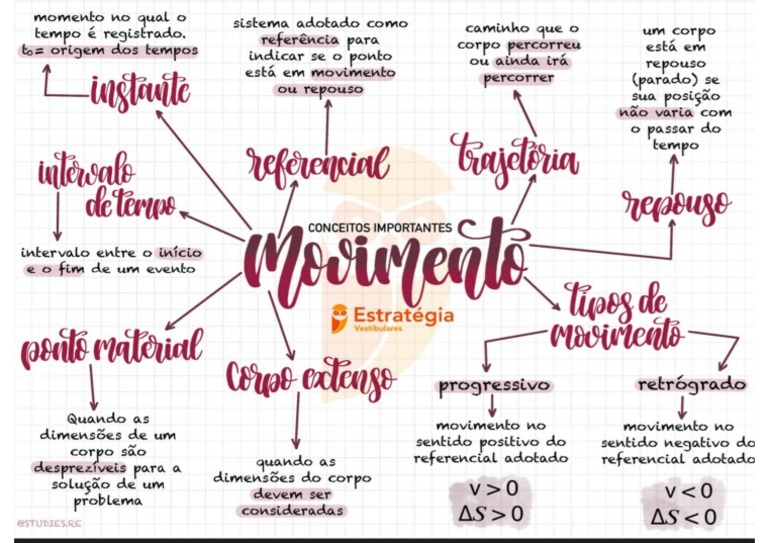 momento no qual o
tempo é registrado.
t₀ = origem dos tempos
instante
sistema adotado como
referência para
indicar se o ponto
está em movimento
ou repouso
referencial
caminho que o
corpo percorreu
ou ainda irá
percorrer
trajetória
um corpo
está em
repouso
(parado) se
sua posição
não varia com
o passar do
tempo
repouso
intervalo
de tempo
intervalo entre o início
e o fim de um evento
CONCEITOS IMPORTANTES
Movimento
Estratégia
Vestibulares
ponto material
Quando as
dimensões de um
corpo são
desprezíveis para a
solução de um
problema
Corpo extenso
quando as
dimensões do corpo
devem ser
consideradas
tipos de
movimento
progressivo
movimento no
sentido positivo do
referencial adotado
v > 0
ΔS > 0
retrógrado
movimento no
sentido negativo do
referencial adotado
v < 0
ΔS < 0
@STUDIES.RE